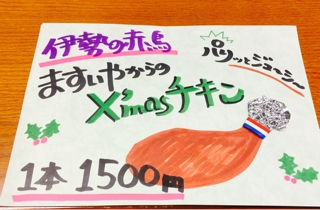 伊勢の赤鳥
パリッとジューシー
ますいやからの
X'masチキン
1本 1500円